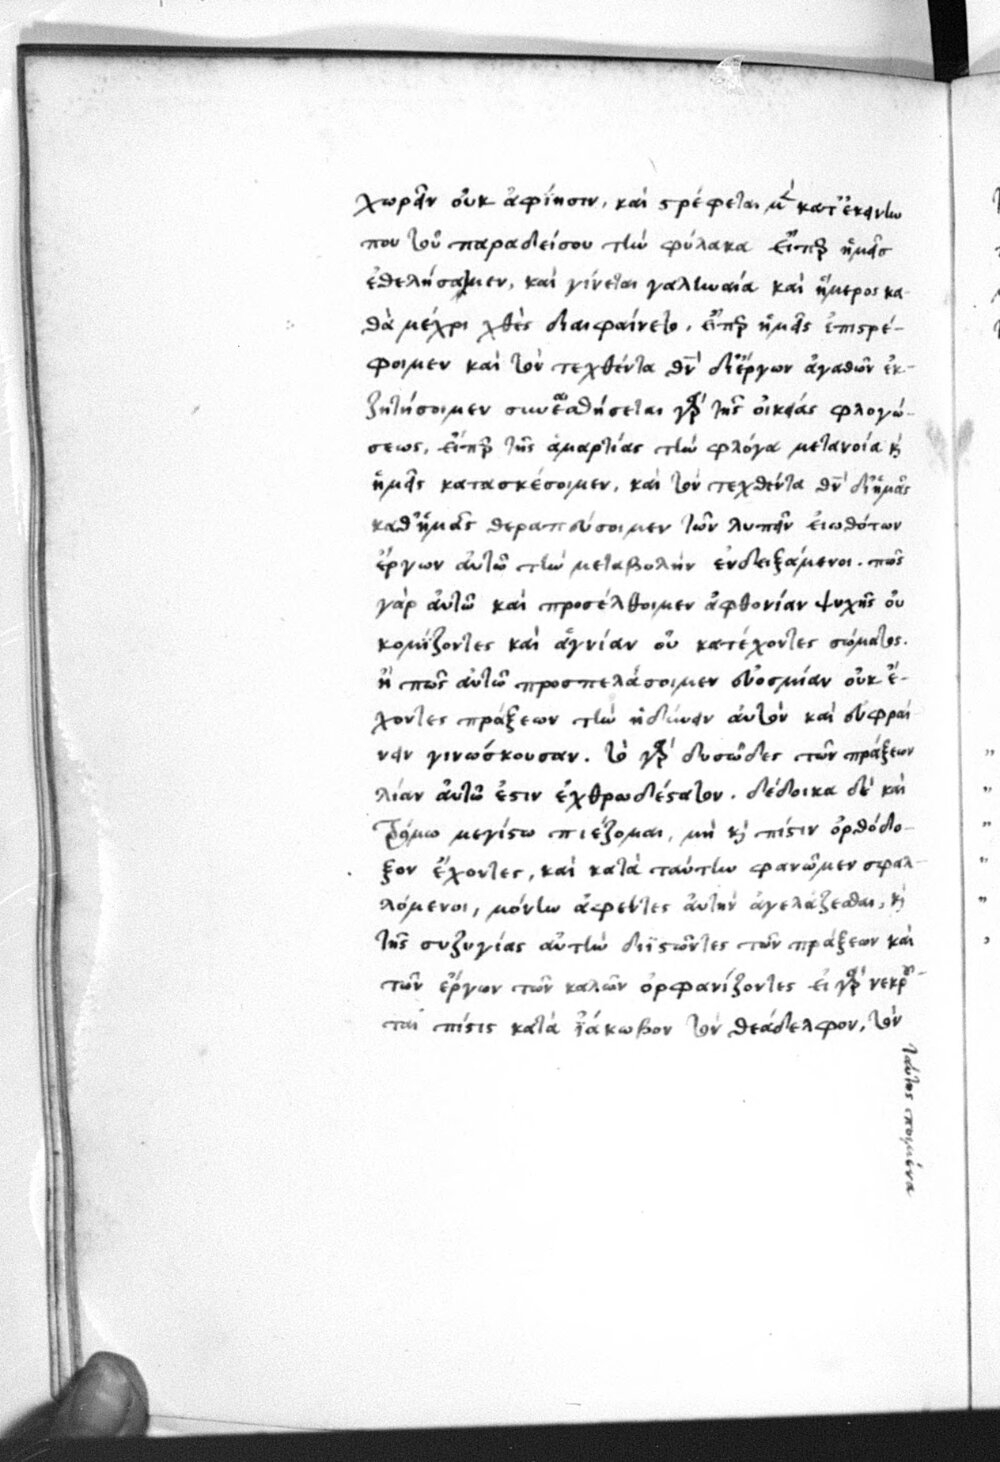 χωρεῖν οὐκ ἀφίησιν, καὶ στρέφεται μὲν κατ' ἐκείνην
που τοῦ παραδείσου τὴν φύλακα εἴπερ ἡμᾶς
ἐθελήσαιμεν, καὶ γίνεται γαληναία καὶ ἥμερος κα-
θὰ μέχρι χθὲς διαιφαίνετο, εἴπερ ἡμᾶς ἐπιστρέ-
φοιμεν καὶ τὸν τεχθέντα θν δι' ἔργων ἀγαθῶν ἐκ-
ζητήσοιμεν γὰρ τῆς οἰκείας φλογώ-
σεως, εἴπερ τῆς ἁμαρτίας τὴν φλόγα μετανοία κ
ἡμᾶς κατασκέσοιμεν, καὶ τὸν τεχθέντα θν δι' ἡμᾶς
καθ' ἡμᾶς θεραπεύσοιμεν τῶν λυπεῖν εἰωθότων
ἔργων αὐτῶ τὴν μεταβολὴν ἐνδειξάμενοι. πῶς
γὰρ αὐτῶ καὶ προσέλθοιμεν ἀφθονίαν ψυχῆς οὐ
κομίζοντες καὶ ἁγνίαν οὐ κατέχοντες σώματος.
ἢ πῶς αὐτῶ προσπελάσοιμεν εὐοσμίαν οὐκ ἔ-
χοντες πράξεων τὴν ἡδύνειν αὐτὸν καὶ εὐφραί
νειν γινώσκουσαν. τὸ γὰρ δυσῶδες τῶν πράξεων
λίαν αὐτῶ ἐστιν ἐχθρωδέστατον. δέδοικα δὲ καὶ
τρόμω μεγίστω πιέζομαι, μὴ κ πίστιν ὀρθόδο-
ξον ἔχοντες, καὶ κατὰ ταύτην φανῶμεν σφαλ-
λόμενοι, μόνην ἀφέντες αὐτὴν ἀγελάζεσθαι, κ
τῆς συζυγίας αὐτὴν διϊστῶντες τῶν πράξεων καὶ
τῶν ἔργων τῶν καλῶν ὀρφανίζοντες εἰ γὰρ νεκρ
ταὶ πίστις κατὰ ἰάκωβον τὸν θεάδελφον, τὸν
ταύτης ποιμένα